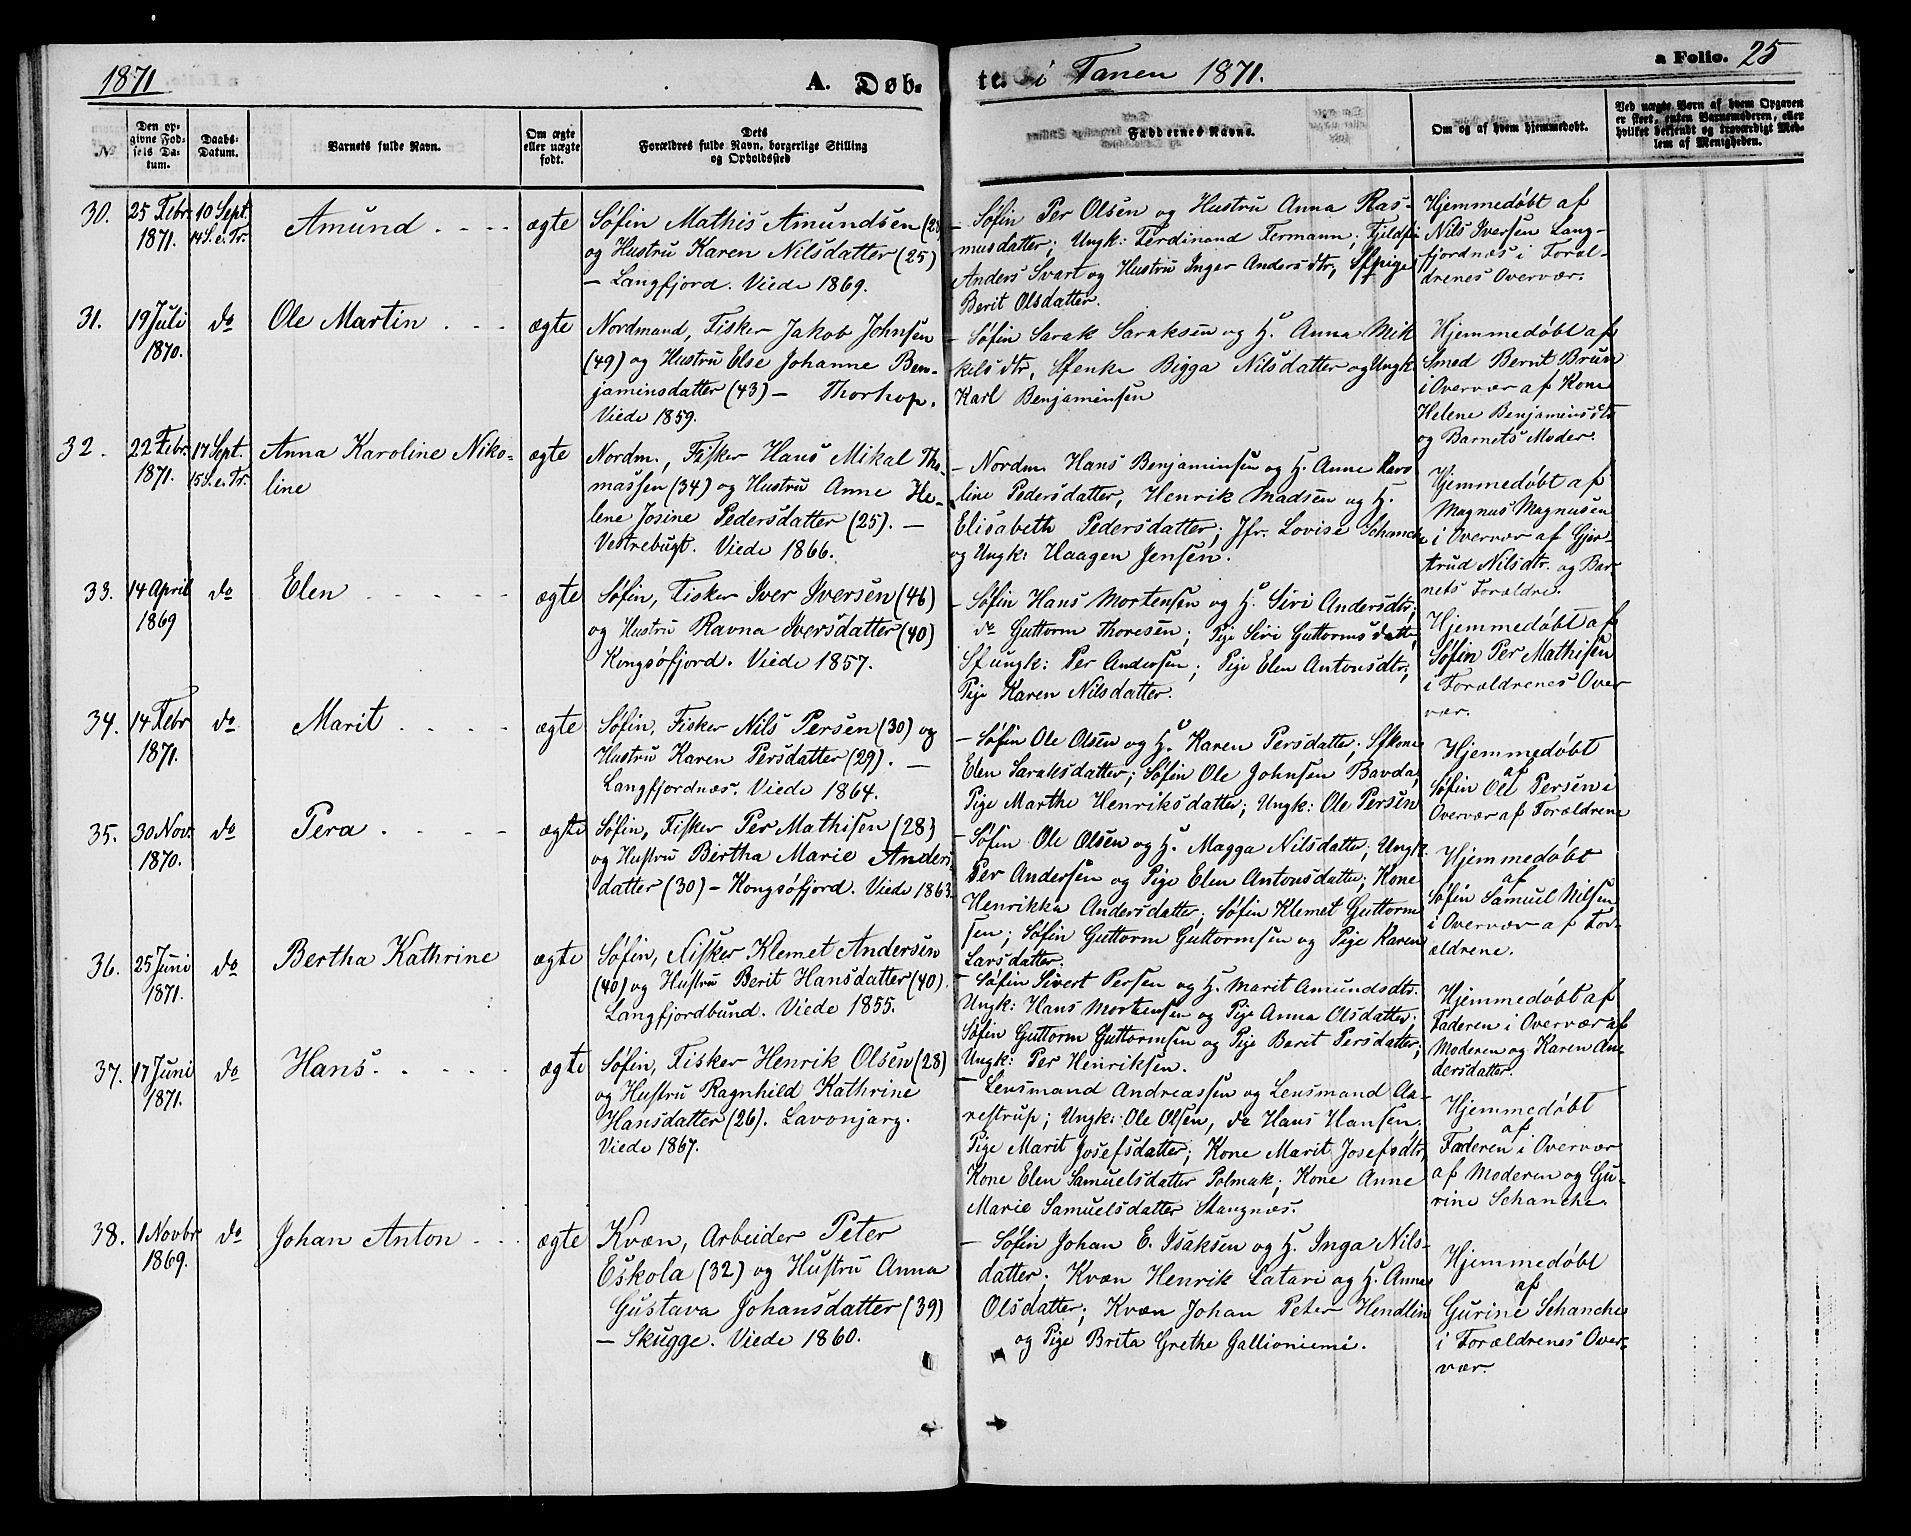 1871
A. Døb-
te. i Tanen 1871.
a Folio. 25
No
Den op-
givne Fød-
sels Da-
tum.
Daabs-
Datum.
Barnets fulde Navn.
Om ægte
eller uægte
født.
Dets
Forældres fulde Navn, borgerlige Stilling
og Opholdssted
Faddernes Navne.
Om og af hvem hjemmedøbt.
Ved uægte Børn af hvem Opgaven
er skeet, enten Barnemoderen, eller
hvilket bekjendt og troværdigt Med-
lem af Menigheden.
30.
25 Febr.
1871.
10 Sept.
14 S. e. Tr.
Amund
ægte
Søfin Mathis Amundsen (28)
og Hustru Karen Nilsdatter (25)
– Langfjord. Viede 1869.
– Søfin Per Olsen og Hustru Anna Ras-
musdatter; Ungk: Ferdinand Fermann; Fjeldfin
Anders Svart og Hustru Inger Andersdtr, Sfpige
Berit Olsdatter.
Hjemmedøbt af
Nils Iversen Lang-
fjordnæs i Foræl-
drenes Overvær.
31.
19 Juli
1870.
do
Ole Martin
ægte
Nordmand, Fisker Jakob Johnsen
(49) og Hustru Else Johanne Ben-
jaminsdatter (43) – Thorhop.
Viede 1859.
– Søfin Sarak Saraksen og H. Anna Mik
kelsdtr, Sfenke Bigga Nilsdatter og Ungk
Karl Benjaminsen
Hjemmedøbt af
Smed Bernt Brun
i Overvær af Kone
Helene Benjaminsdtr
og Barnets Moder.
32.
22 Febr.
1871.
17 Sept.
15 S. e. Tr.
Anna Karoline Niko-
line
ægte
Nordm., Fisker Hans Mikal Tho-
massen (34) og Hustru Anne He-
lene Josine Pedersdatter (25). –
Vestrebugt. Viede 1866.
– Nordm. Hans Benjaminsen og H. Anne Karo
line Pedersdatter, Henrik Madsen og H.
Elisabeth Pedersdatter; Jfr. Lovise Schanche
og Ungk: Haagen Jensen.
Hjemmedøbt af
Magnus Magnusen
i Overvær af Gjer-
trud Nilsdtr. og Bar-
nets Forældre.
33.
14 April
1869
do
Elen
ægte
Søfin, Fisker Iver Iversen (46)
og Hustru Ravna Iversdatter (40)
Kongsøfjord. Viede 1857.
– Søfin Hans Mortensen og H. Siri Andersdtr;
do Guttorm Thoresen; Pige Siri Guttormsdatter,
Sfungk: Per Andersen; Pige Elen Antonsdtr;
Pige Karen Nilsdatter.
Hjemmedøbt af
Søfin Per Mathisen
i Forældrenes Over
vær.
34.
14 Febr
1871.
do
Marit
ægte
Søfin, Fisker Nils Persen (30) og
Hustru Karen Persdatter (29). –
Langfjordnæs. Viede 1864.
– Søfin Ole Olsen og H. Karen Persdatter; Sfkone
Elen Saraksdatter; Søfin Ole Johnsen Bavda,
Pige Marthe Henriksdatter; Ungk: Ole Persen
Hjemmedøbt
af
Søfin Ole Persen i
Overvær af Forældrene
35.
30 Nov.
1870.
do
Pera
ægte
Søfin, Fisker Per Mathisen (28)
og Hustru Bertha Marie Anders
datter (30) – Kongsøfjord. Viede 1863.
– Søfin Ole Olsen og H. Magga Nilsdatter; Ungk
Per Andersen og Pige Elen Antonsdatter; Kone
Henrikka Andersdatter; Søfin Klemet Guttorm
sen; Søfin Guttorm Guttormsen og Pige Karen
Larsdatter.
Hjemmedøbt
af
Søfin Samuel Nilsen
i Overvær af For-
ældrene.
36.
25 Juni
1871.
do
Bertha Kathrine
ægte
Søfin, Fisker Klemet Andersen
(40) og Hustru Berit Hansdatter (40).
Langfjordbund. Viede 1855.
– Søfin Sivert Persen og H. Marit Amundsdtr.
Ungk: Hans Mortensen og Pige Anna Olsdatter;
Søfin Guttorm Guttormsen og Pige Berit Persdatter;
Ungk: Per Henriksen.
Hjemmedøbt af
Faderen i Overvær af
Moderen og Karen An-
dersdatter.
37.
17 Juni
1871.
do
Hans.
ægte
Søfin, Fisker Henrik Olsen (28)
og Hustru Ragnhild Kathrine
Hansdatter (26). Lavonjarg.
Viede 1867.
– Lensmand Andreassen og Lensmand Aa-
restrup; Ungk: Ole Olsen, do Hans Hansen;
Pige Marit Josefsdatter; Kone Marit Josefsdtr,
Kone Elen Samuelsdatter Polmak; Kone Anne
Marie Samuelsdatter Stangnæs.
Hjemmedøbt
af
Faderen i Overvær
af Moderen og Gu-
rine Schanche.
38.
1 Novbr
1869.
do
Johan Anton
ægte
Kvæn, Arbeider Peter
Eskola (32) og Hustru Anna
Gustava Johansdatter (39)
– Skugge. Viede 1860.
– Søfin Johan E. Isaksen og H. Inga Nils-
datter; Kvæn Henrik Latari og H. Anna
Olsdatter; Kvæn Johan Peter Hendlin
og Pige Brita Grethe Gallioniemi.
Hjemmedøbt
af
Gurine Schanche
i Forældrenes Over-
vær.